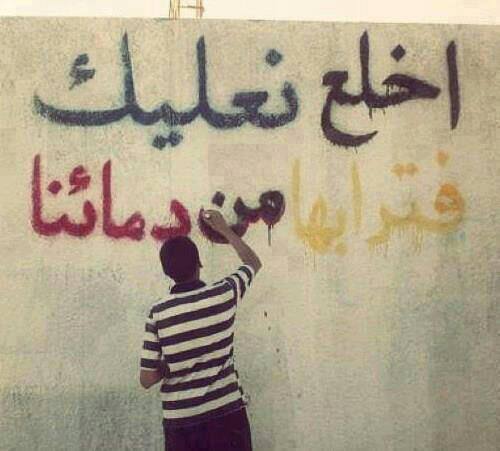 اخلع نعليك
فترابها من دمائنا